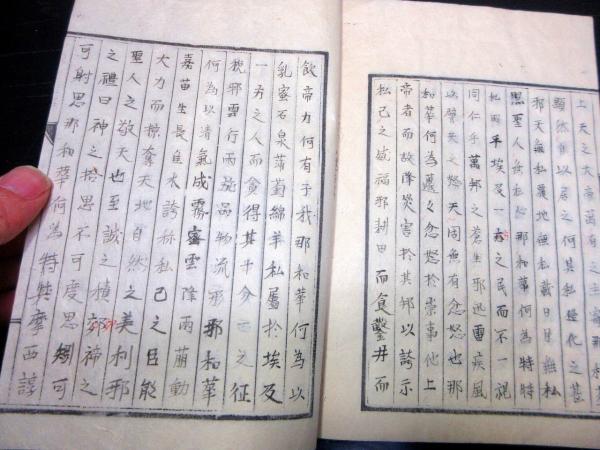 上天之大帝萬有之主
顯然自以居之何其私壅化之甚
邪天無私覆地無私載日月無私
照聖人無私那和華何為特特
私於埃及一方之民而不一視
同仁乎萬邦之蒼生邪迅雷疾風
以譬天之怒天固無有忿怒也那
和華何為忿怒於崇事他上
帝者而故降災害於其邦以誇示
私己之威福邪耕田而食鑿井而
飲帝力何有于我那和華何為以
乳蜜石泉葡萄綿羊私屬於埃及
一方之人而貪得其十分一之征
稅邪雲行雨施品物流形那和華
何為以清氣成霧密雲降雨萠動
嘉苗生長佳木誇称私己之巨能
大力而掠奪天地自然之美利邪
聖人之敬天也至誠之積郊禘之
之禮曰神之格思不可度思矧可
可射思那和華何為特典摩西諄